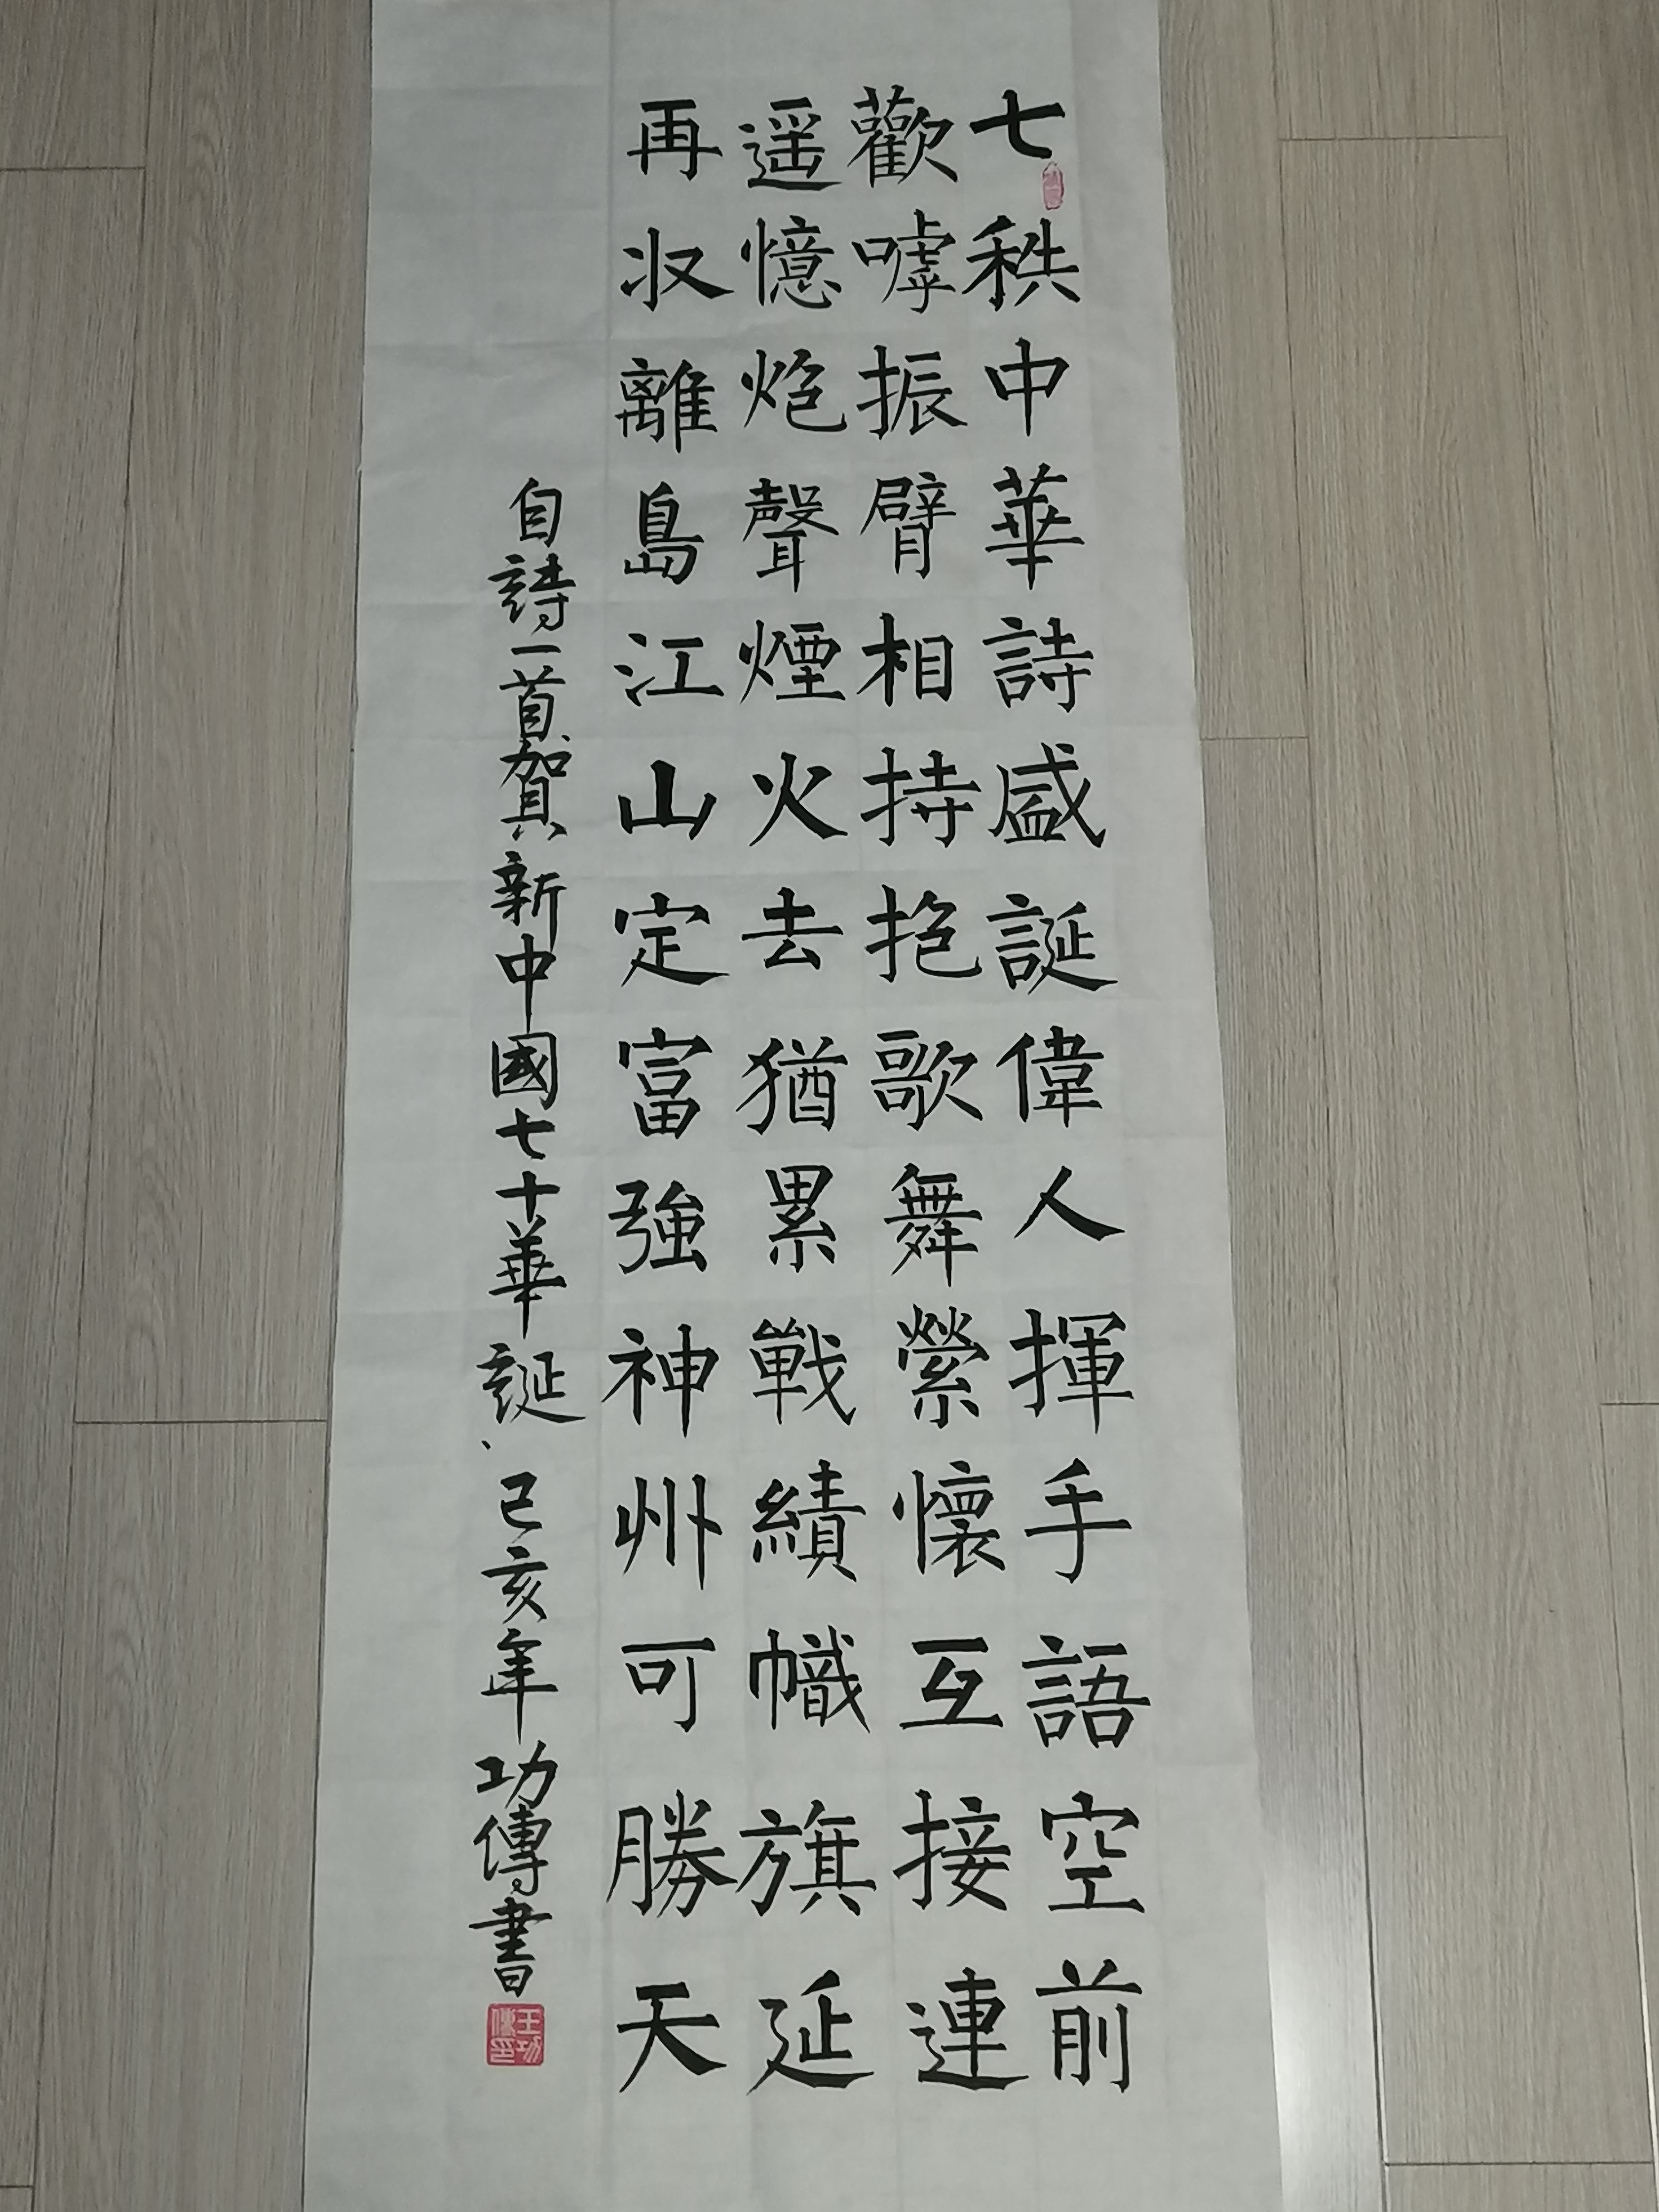 七秩中華詩盛誕偉人揮手語空前
歡嘑振臂相持抱歌舞縈懷互接連
遥憶炮聲煙火去猶累戰績幟旗延
再収離島江山定富強神州可勝天
自詩一首賀新中國七十華誕、己亥年功傳書
王功傳印